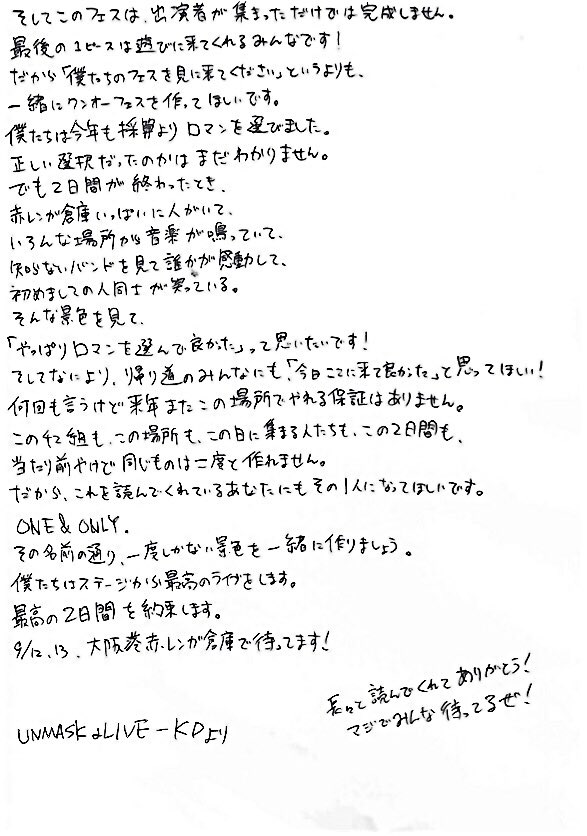 そしてこのフェスは、出演者が集まっただけでは完成しません。
最後の1ピースは遊びに来てくれるみんなです！
だから「僕たちのフェスを見に来てください」というよりも、
一緒にワンオーフェスを作ってほしいです。
僕たちは今年も採算よりロマンを選びました。
正しい選択だったのかはまだわかりません。
でも2日間が終わったとき、
赤レンガ倉庫いっぱいに人がいて、
いろんな場所から音楽が鳴っていて、
知らないバンドを見て誰かが感動して、
初めましての人同士が笑っている。
そんな景色を見て、
「やっぱりロマンを選んで良かった」って思いたいです！
そしてなにより、帰り道のみんなにも、「今日ここに来て良かった」と思ってほしい！
何回も言うけど来年またこの場所でやれる保証はありません。
この42組も、この場所も、この日に集まる人たちも、この2日間も、
当たり前やけど同じものは二度と作れません。
だから、これを読んでくれているあなたにもその1人になってほしいです。
ONE & ONLY.
その名前の通り、一度しかない景色を一緒に作りましょう。
僕たちはステージから最高のライブをします。
最高の2日間を約束します。
9/12.13、大阪港赤レンガ倉庫で待ってます！
長々と読んでくれてありがとう！
マジでみんな待ってるぜ！
UNMASK aLIVE - KDより